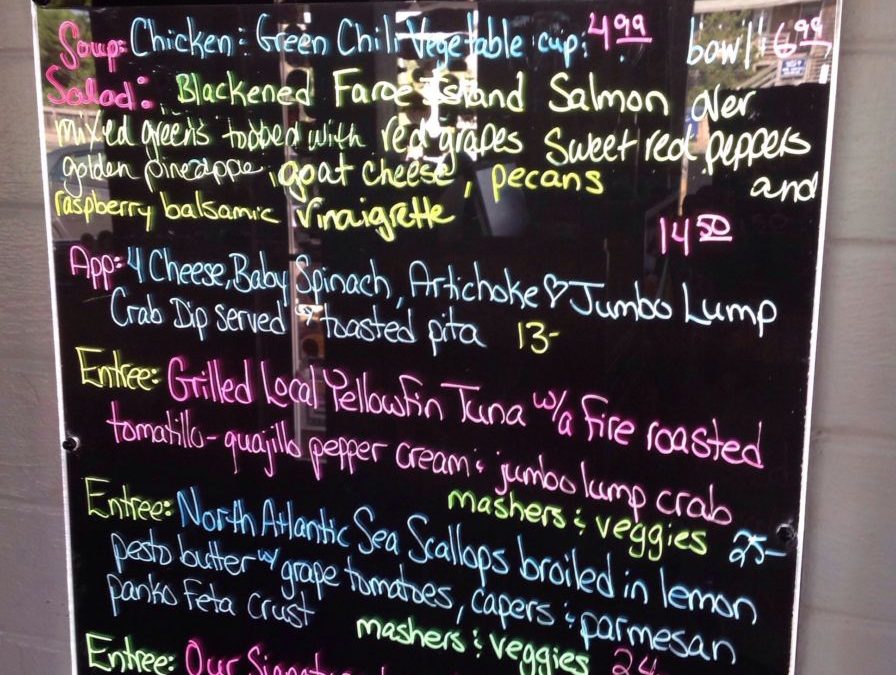 Soup: Chicken & Green Chili Vegetable cup: 4.99 bowl: 6.99
Salad: Blackened Faroe Island Salmon over
mixed greens topped with red grapes sweet red peppers
golden pineappe, goat cheese, pecans and
raspberry balsamic vinaigrette
14.50
App: 4 Cheese, Baby Spinach, Artichoke ♡ Jumbo Lump
Crab Dip served w/ toasted pita 13-
Entree: Grilled Local Yellowfin Tuna w/a fire roasted
tomatillo-guajillo pepper cream & jumbo lump crab
mashers & veggies 25-
Entree: North Atlantic Sea Scallops broiled in lemon
pesto butter w/ grape tomatoes, capers & parmesan
panko feta crust mashers & veggies 24
Entree: Our